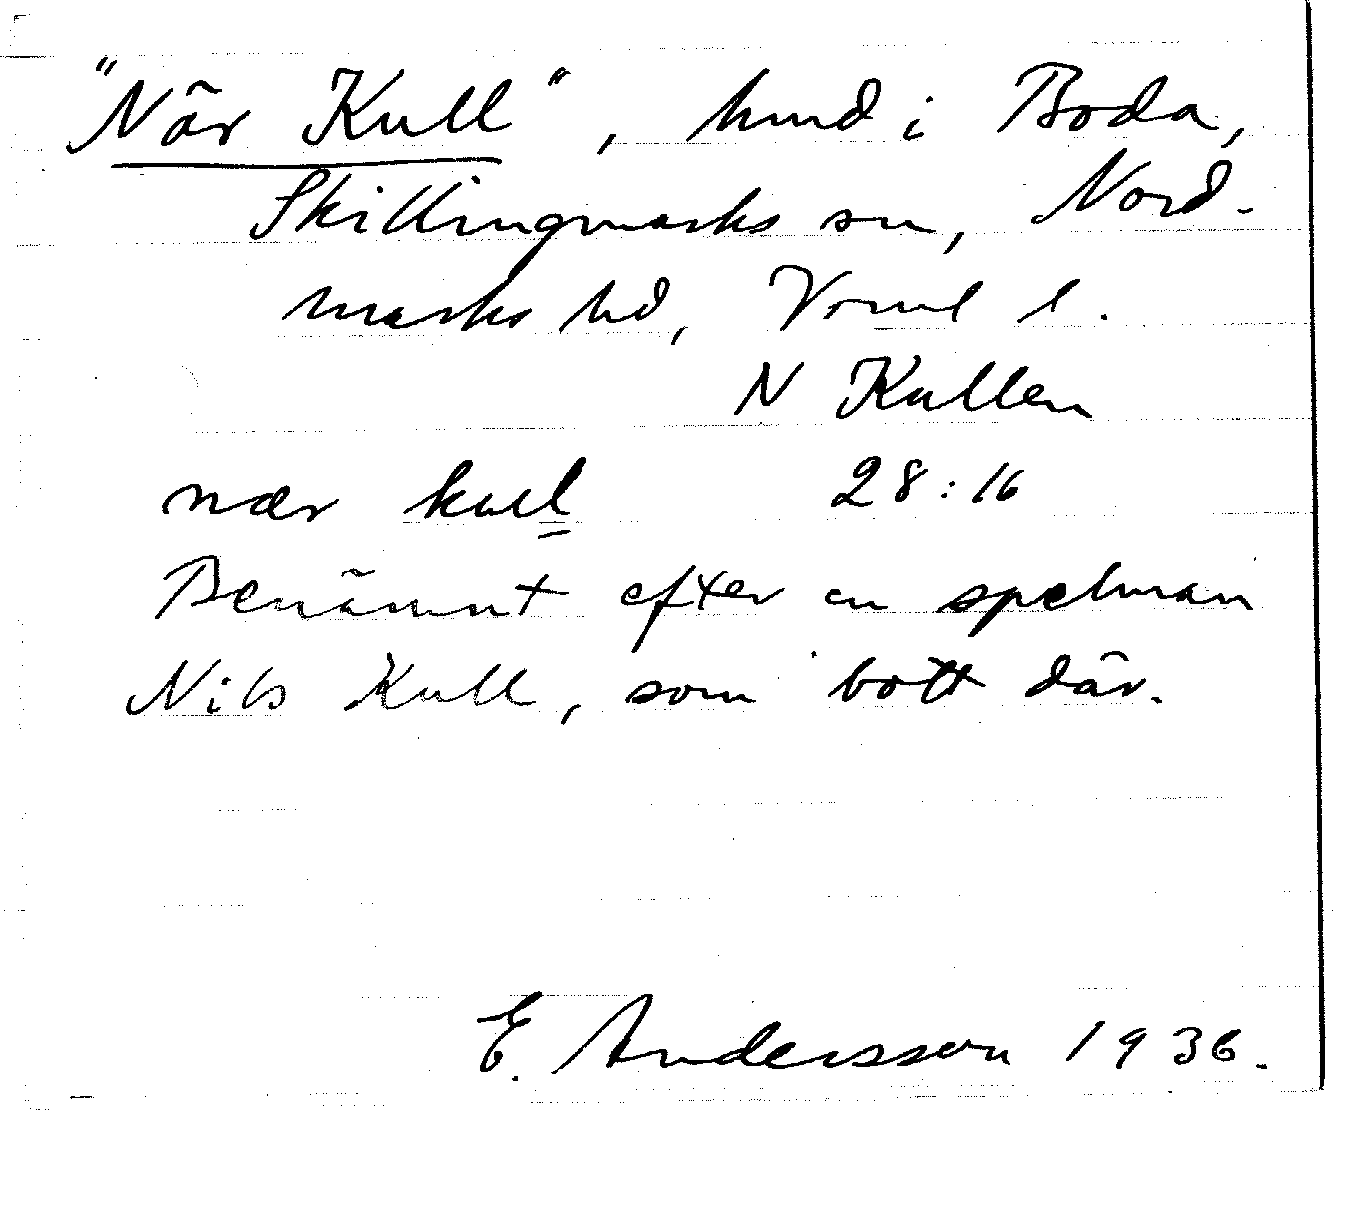 "När Kull", hmd i Boda,
Skillingmarks sn, Nord-
marks hd, Värml l.
N Kullen
nær kull 28:16
Benämnt efter en spelman
Nils Kull, som bott där.
E. Andersson 1936.